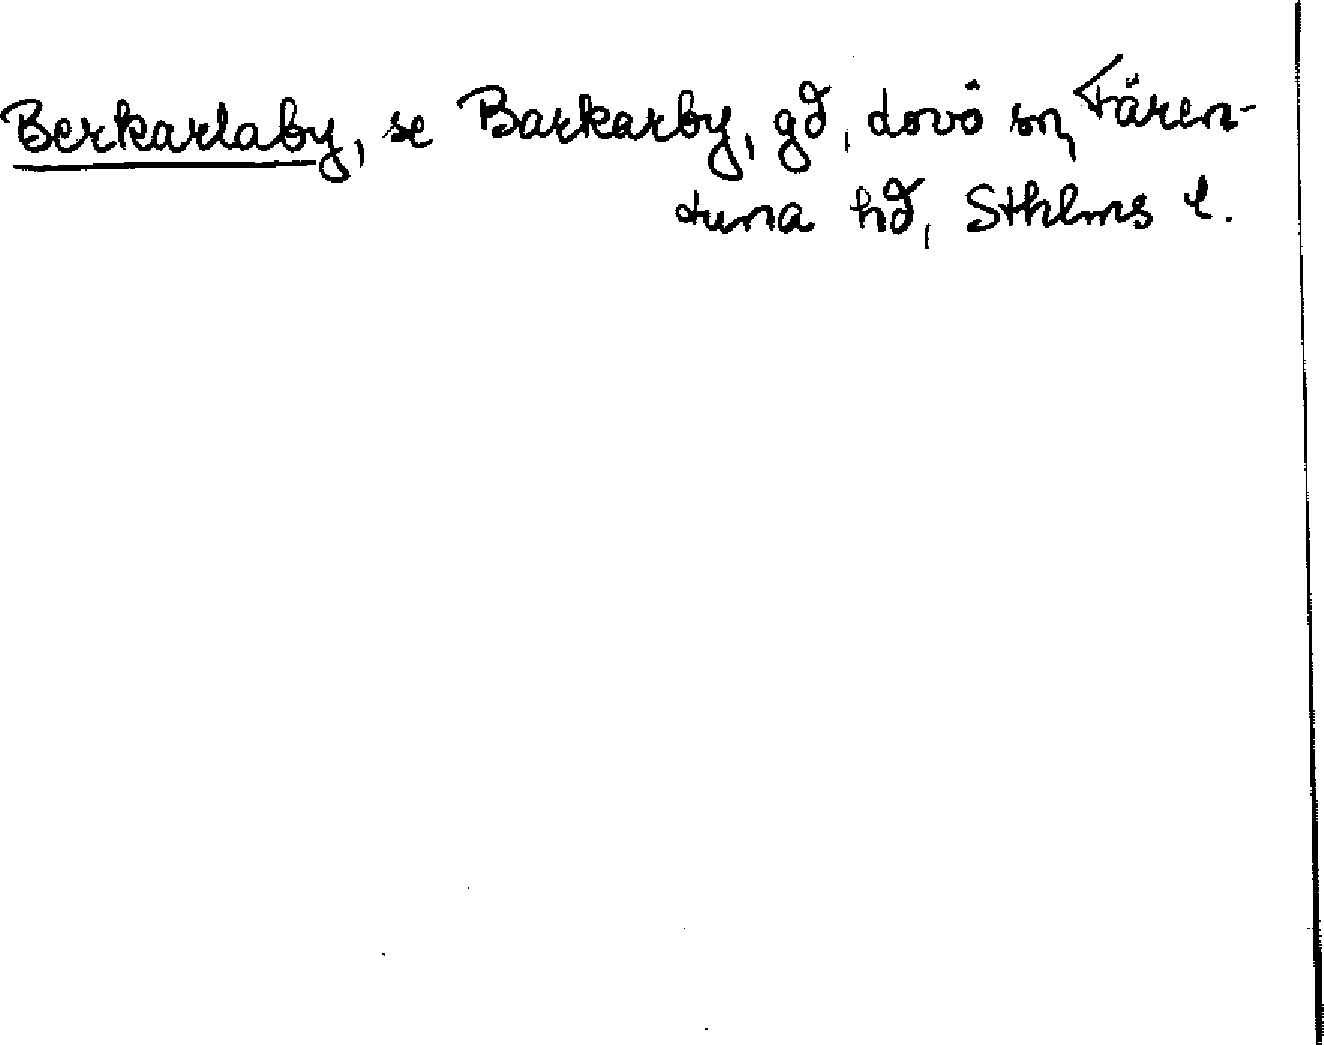 Berkarlaby, se Barkarby, gd, Lovö sn, Fären-
tuna hd, Sthlms l.